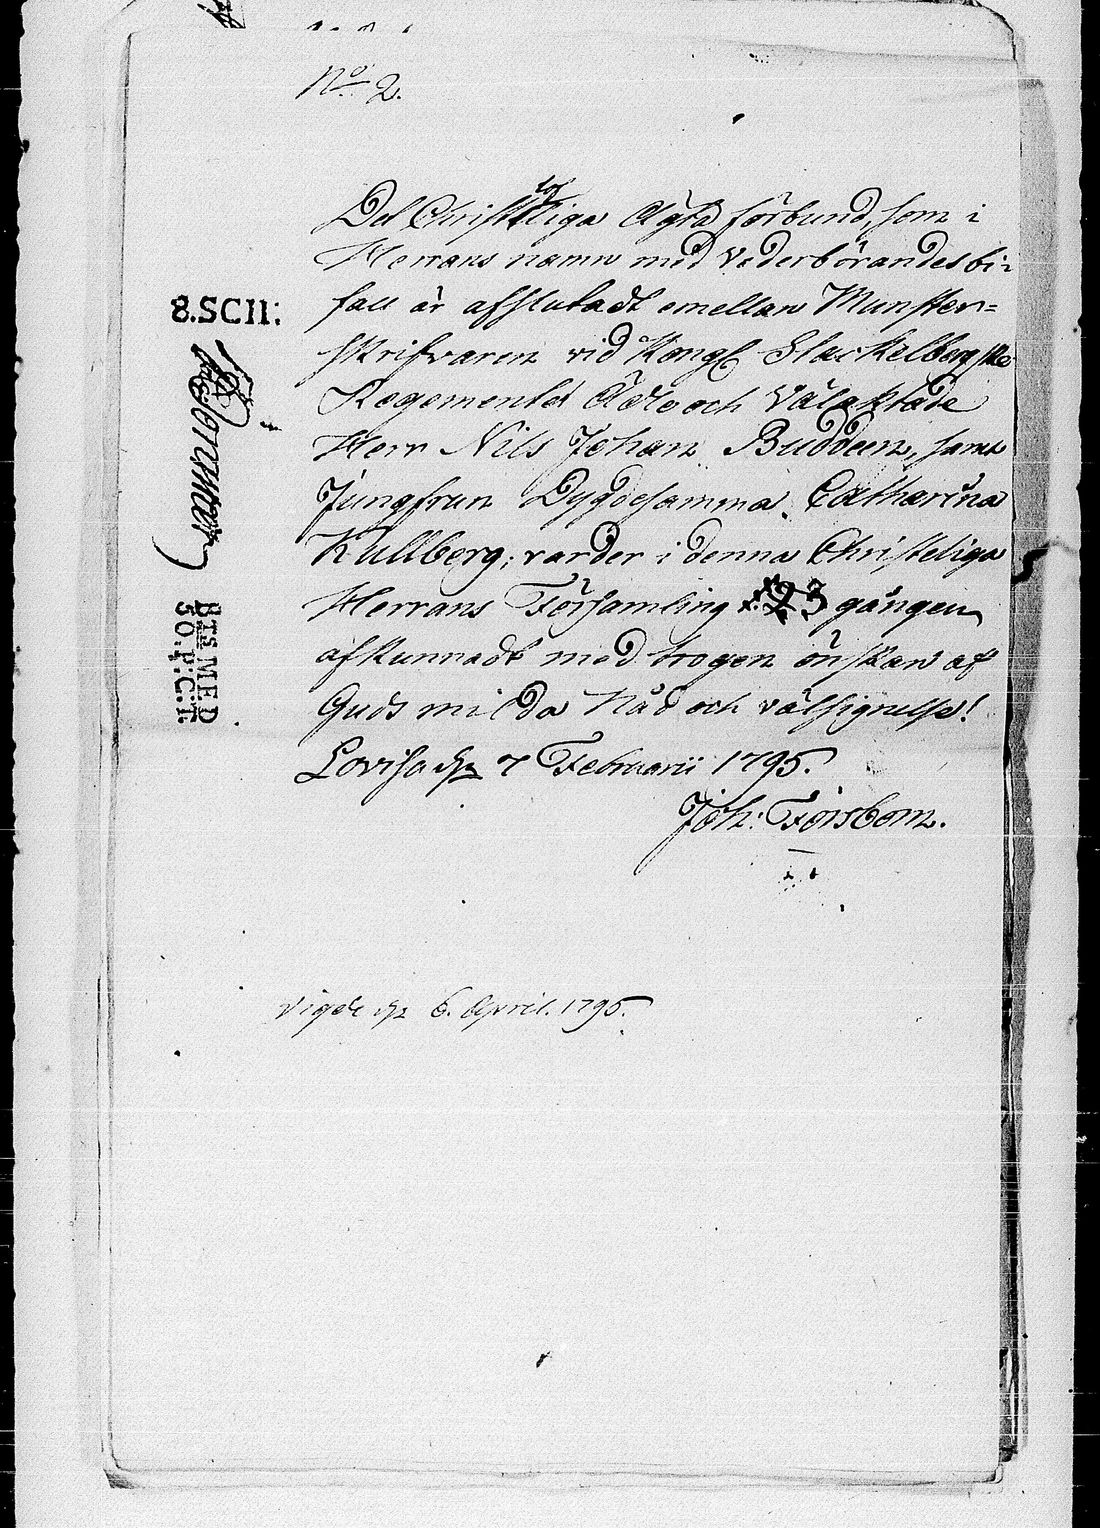 No 2.
Det Christeliga Ägta förbund, som i
Herrans namn med Vederbörandes bi-
fall är afslutadt emellan Munster-
skrifvaren vid Kongl Stackelbergske
Regementet Ädle och Välaktade
Herr Nils Johan Buddeen, samt
Jungfrun Dygdesamma Catharina
Kullberg, varder i denna Christeliga
Herrans Församling 1. 2 3 gången
afkunnadt med trogen önskan af
Guds milda Nåd och välsignelse!
Lovisa den 7 Februarii 1795.
Joh: Forsbom.
Vigde den 6. April. 1795.
8.SCII:
BTS MED
50.P:C:T.